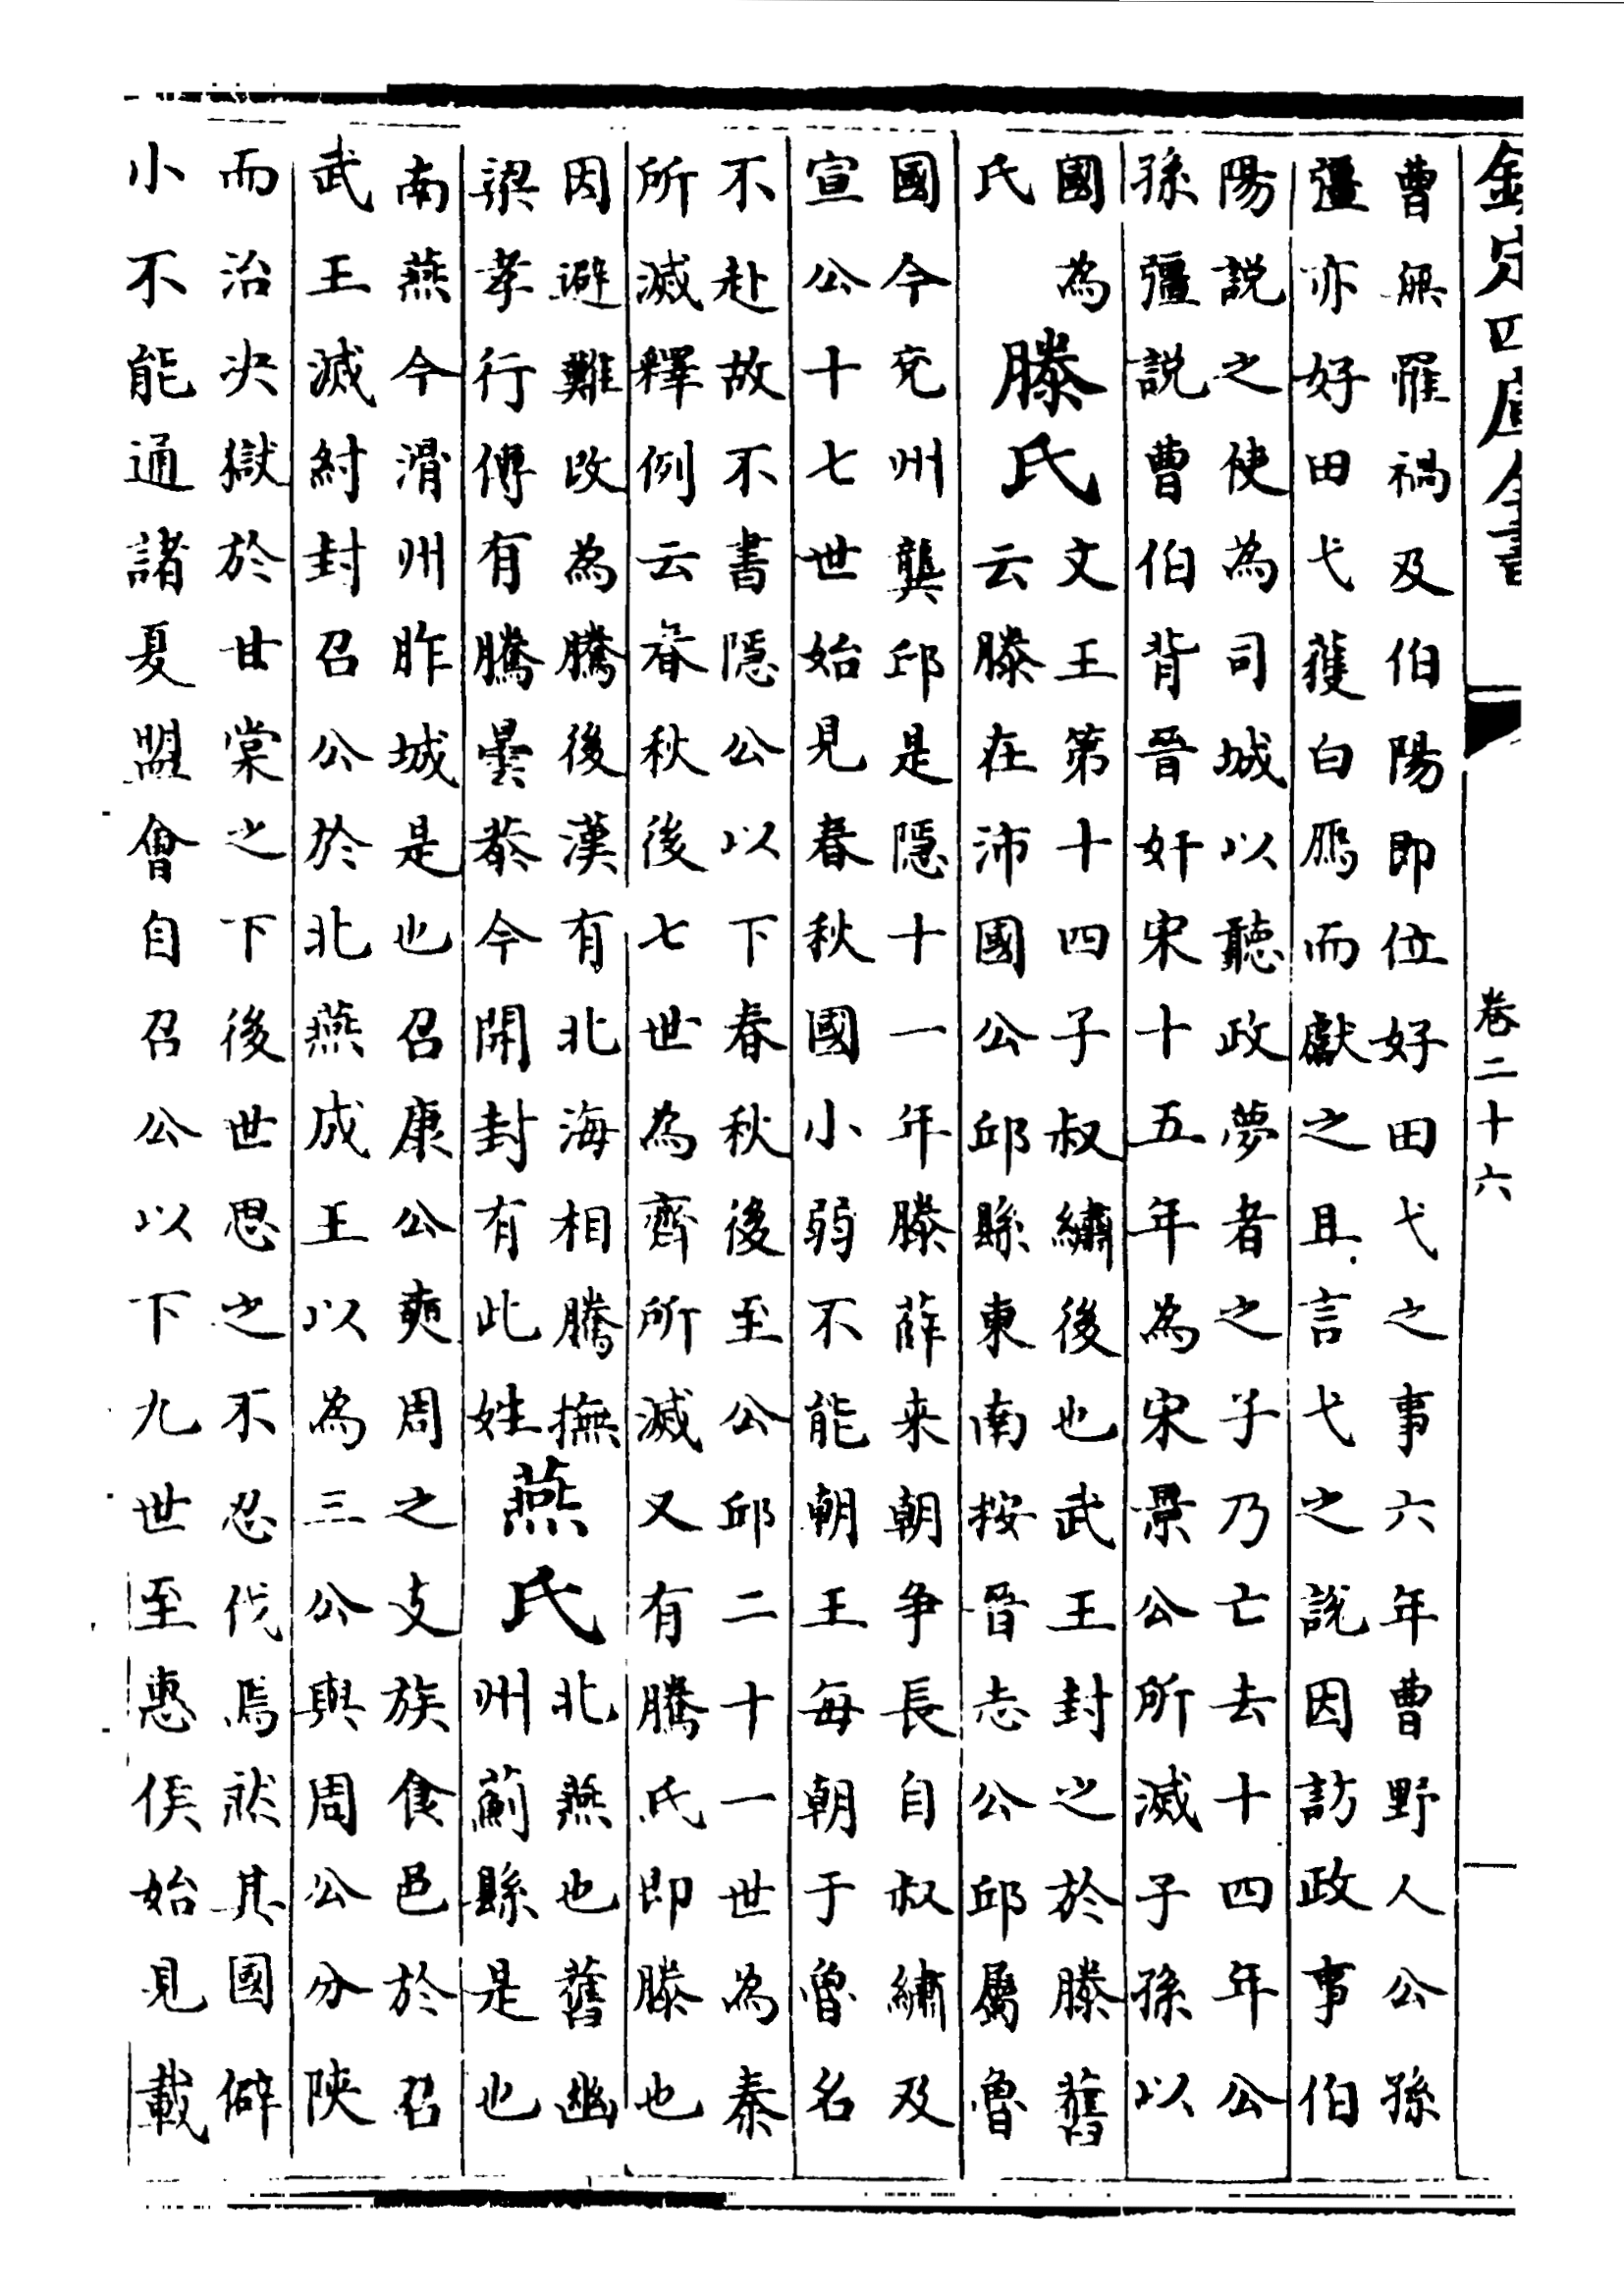 欽定四庫全書
卷二十六
曹無罹禍及伯陽即位好田弋之事六年曹野人公孫
彊亦好田弋獲白鴈而獻之且言弋之說因訪政事伯
陽說之使為司城以聽政夢者之子乃亡去十四年公
孫彊說曹伯背晉奸宋十五年為宋景公所滅子孫以
國為
氏
滕氏
文王第十四子叔繡後也武王封之於滕舊
云滕在沛國公邱縣東南按晉志公邱屬魯
國今兗州龔邱是隱十一年滕薛来朝争長自叔繡及
宣公十七世始見春秋國小弱不能朝王每朝于魯名
不赴故不書隱公以下春秋後至公邱二十一世為秦
所滅釋例云春秋後七世為齊所滅又有騰氏即滕也
因避難改為騰後漢有北海相騰撫
梁孝行傳有騰曇恭今開封有此姓
燕氏
北燕也舊幽
州薊縣是也
南燕今滑州昨城是也召康公奭周之支族食邑於召
武王滅紂封召公於北燕成王以為三公與周公分陝
而治决獄於甘棠之下後世思之不忍伐焉然其國僻
小不能通諸夏盟會自召公以下九世至惠侯始見載